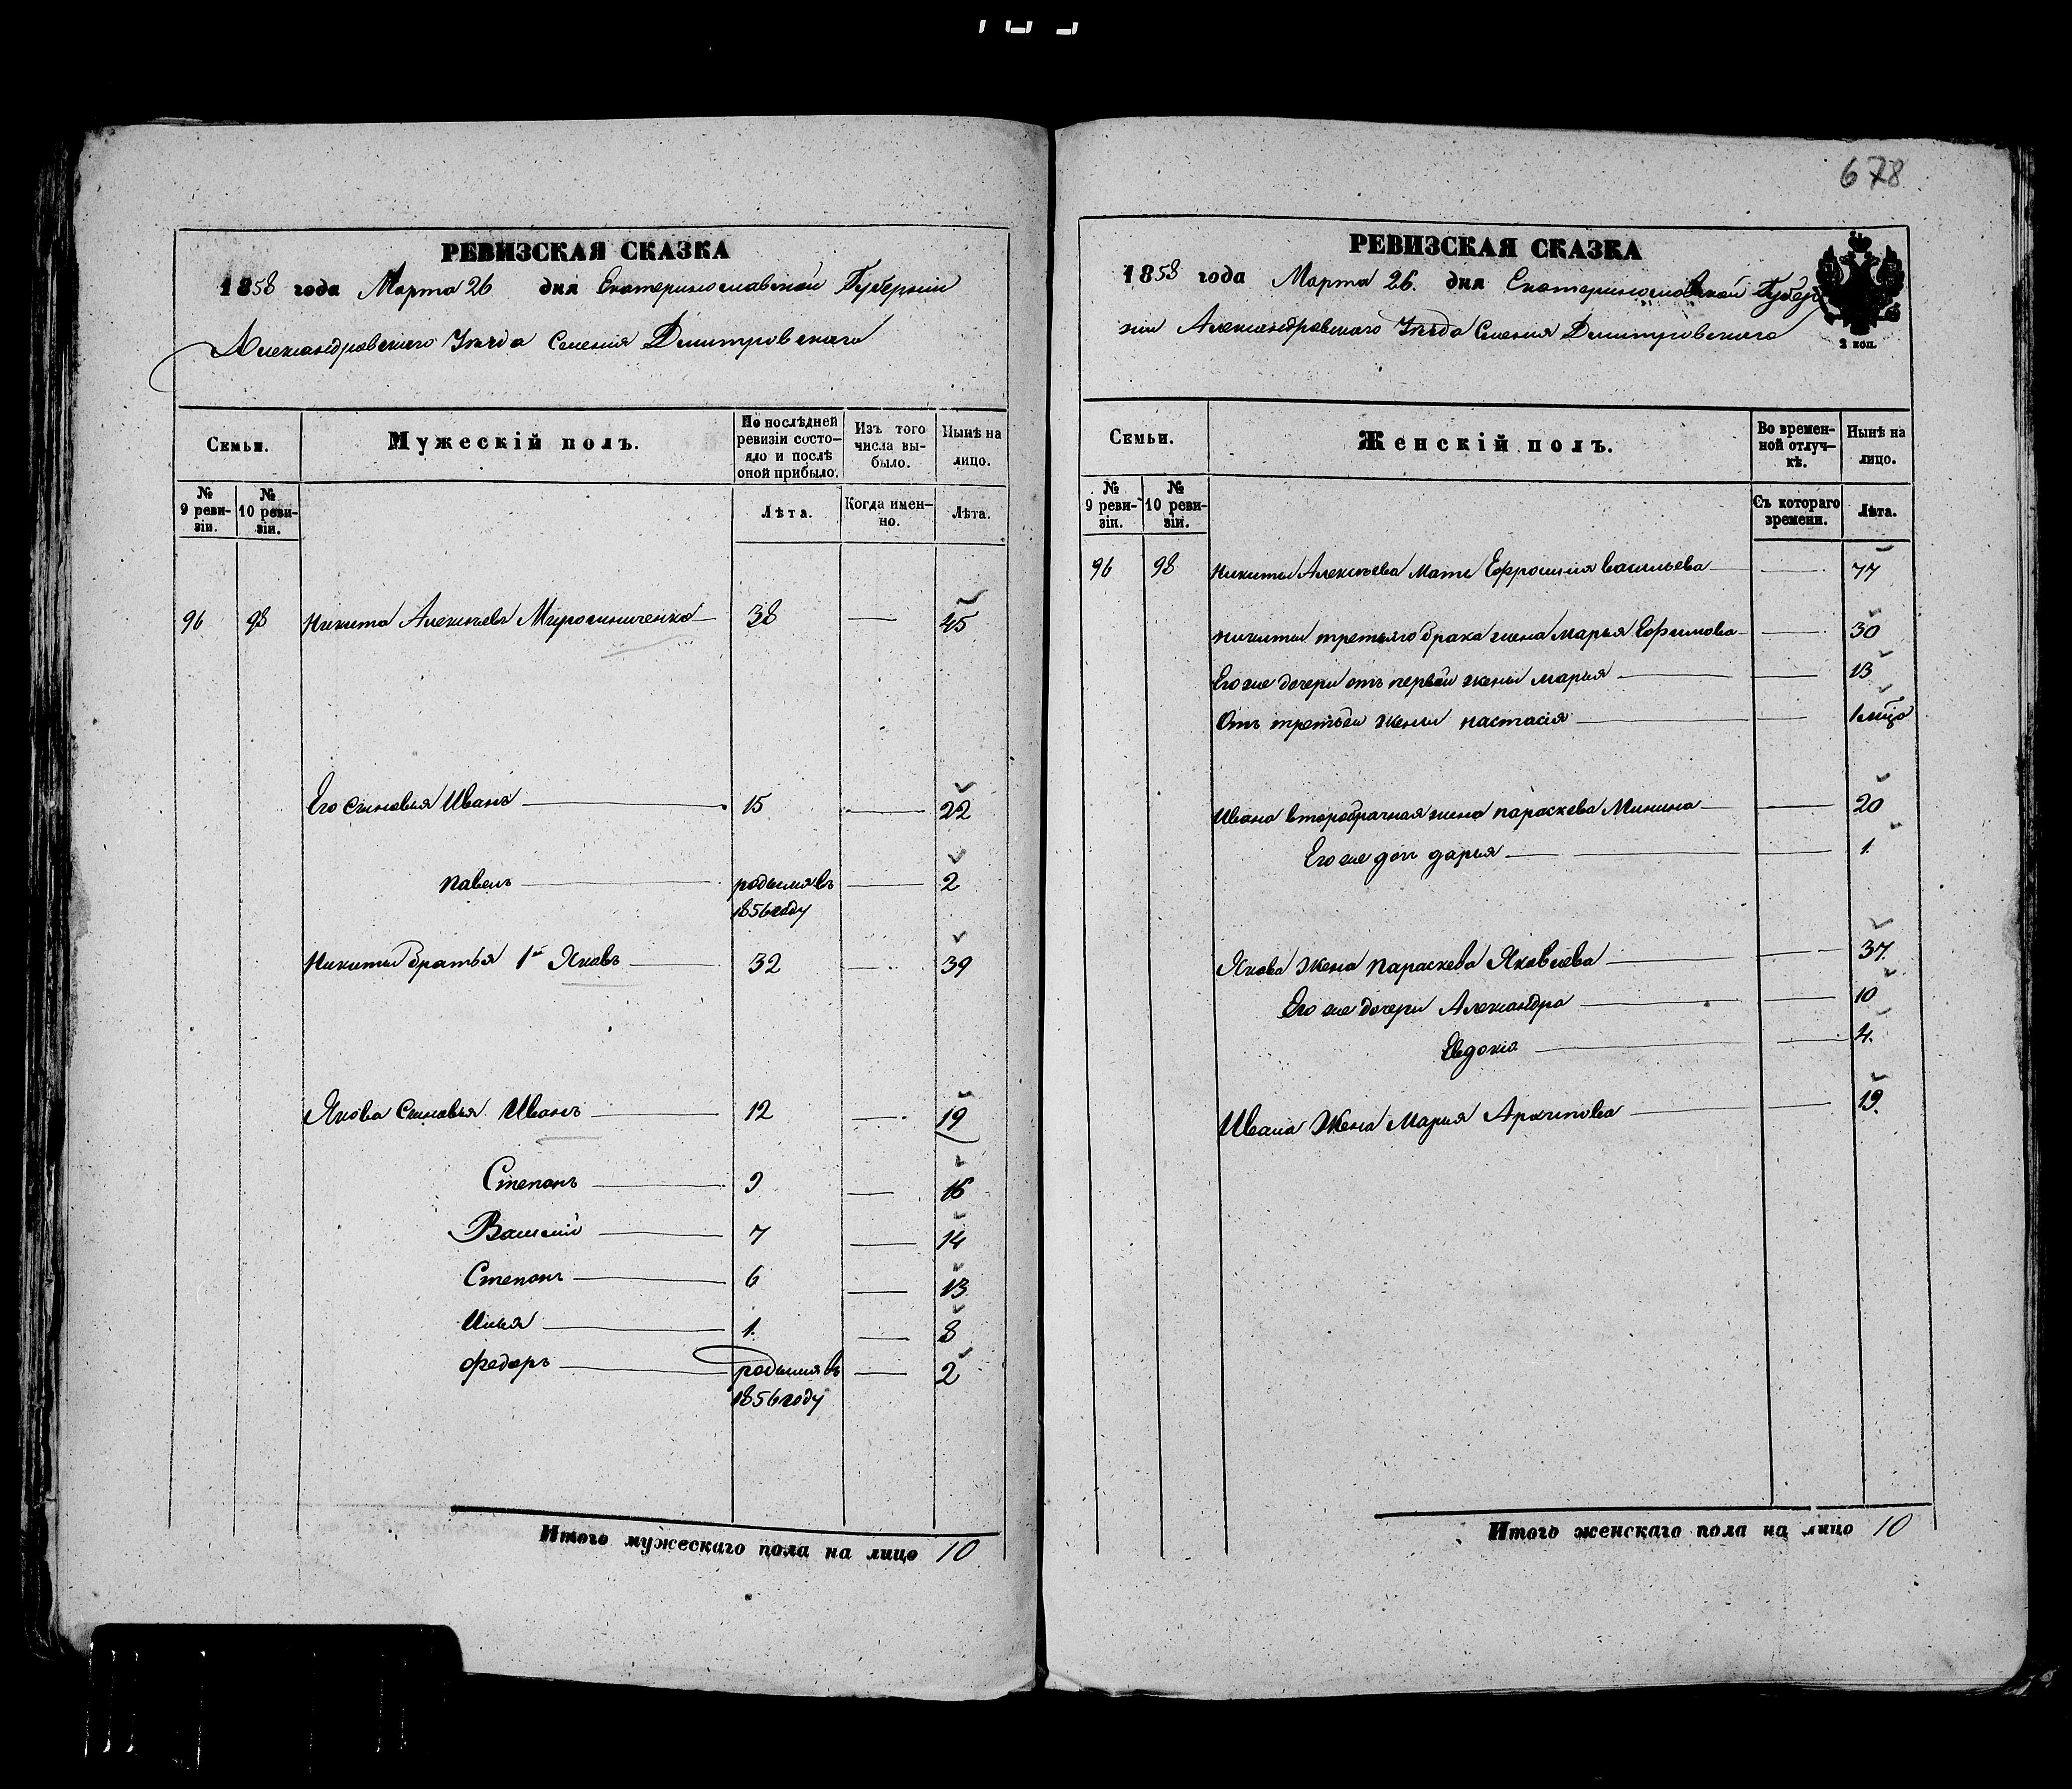 678
РЕВИЗСКАЯ СКАЗКА
1858 года Марта 26 дня Екатеринославской Губернии
Александровскаго Уезда Селения Димитровскаго
Семьи.
Мужескій полъ.
По послѣдней ревизіи состо-яло и послѣ оной прибыло.
Изъ того числа вы-было.
Нынѣ на лицо.
№ 9 реви-зіи.
№ 10 реви-зіи.
Лѣта.
Когда имен-но.
Лѣта.
96 98 Никита Алексѣевъ Мирошниченко 38 — 45
Его сыновья Иванъ 15 — 22
Павелъ родился въ — 2
1856 году
Никиты братья 1й Яковъ 32 — 39
Якова Сыновья Иванъ 12 — 19
Степанъ 9 — 16
Василий 7 — 14
Степанъ 6 — 13
Илья 1. — 8
Федоръ родился въ — 2
1856 году
Итого мужескаго пола на лицо 10
РЕВИЗСКАЯ СКАЗКА
1858 года Марта 26. дня Екатеринославской Губер
нии Александровскаго Уезда Селения Димитровскаго
2 коп.
Семьи.
Женскій полъ.
Во времен-ной отлуч-кѣ.
Нынѣ на лицо.
№ 9 реви-зіи.
№ 10 реви-зіи.
Съ котораго времени.
Лѣта.
96 98 Никиты Алексѣева Мать Ефросиния Васильева — 77
Никиты третьяго брака жена Марья Ефимова — 30
Его же дочери отъ первой жены Марья — 13
Отъ третьей жены Настасія —
Ивана второбрачная жена Параскева Минина — 20
Его же доч Дарья — 1.
Якова Жена Параскева Яковлева — 37.
Его же дочери Александра — 10
Евдокіа — 4.
Ивана Жена Мария Архипова — 19.
Итого женскаго пола на лицо 10